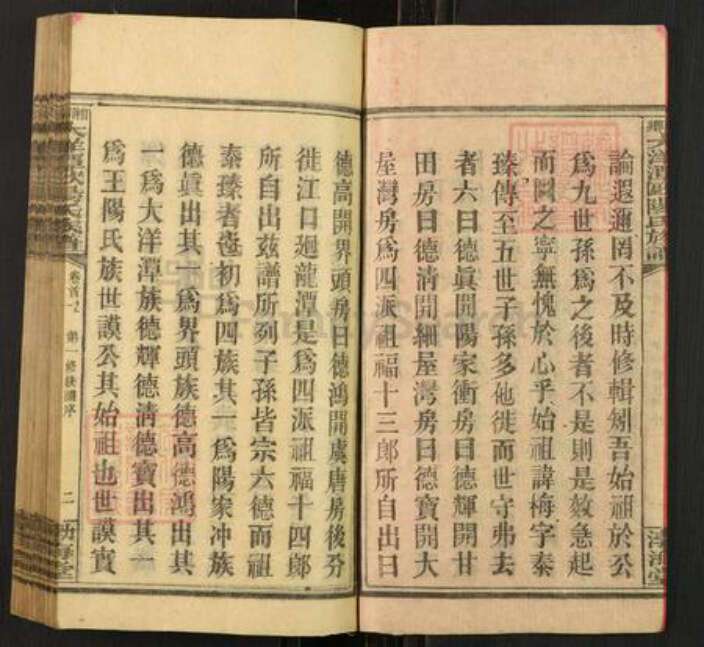 論遐邇罔不及時修輯矧吾始祖於公
爲九世孫爲之後者不是則是效急起
而圖之寧無愧於心乎始祖諱梅字秦
臻傳至五世子孫多他徙而世守弗去
者六曰德眞開陽家衝房曰德輝開甘
田房曰德清開細屋灣房曰德寶開大
屋灣房爲四派祖福十三郎所自出曰
德高開界頭房曰德鴻開虞唐房後分
徙江口廻龍潭是爲四派祖福十四郎
所自出玆譜所列子孫皆宗六德而祖
秦臻者也初爲四族其一爲陽家冲族
德眞出其一爲界頭族德高德鴻出其
一爲大洋潭族德輝德清德寶出其一
爲王陽氏族世謨公其始祖也世謨實
卷首一 第一修族譜序 二